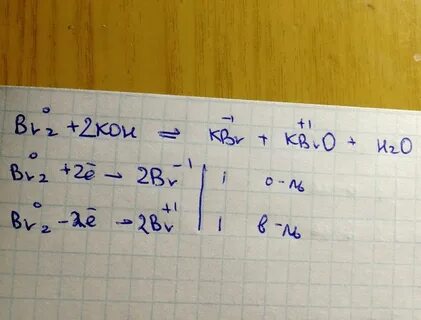 Br₂⁰ + 2KOH ⇌ KBr⁻¹ + KBr⁺¹O + H₂O
Br₂⁰ + 2ē → 2Br⁻¹ | 1 о-ль
Br₂⁰ - 2ē → 2Br⁺¹ | 1 в-ль